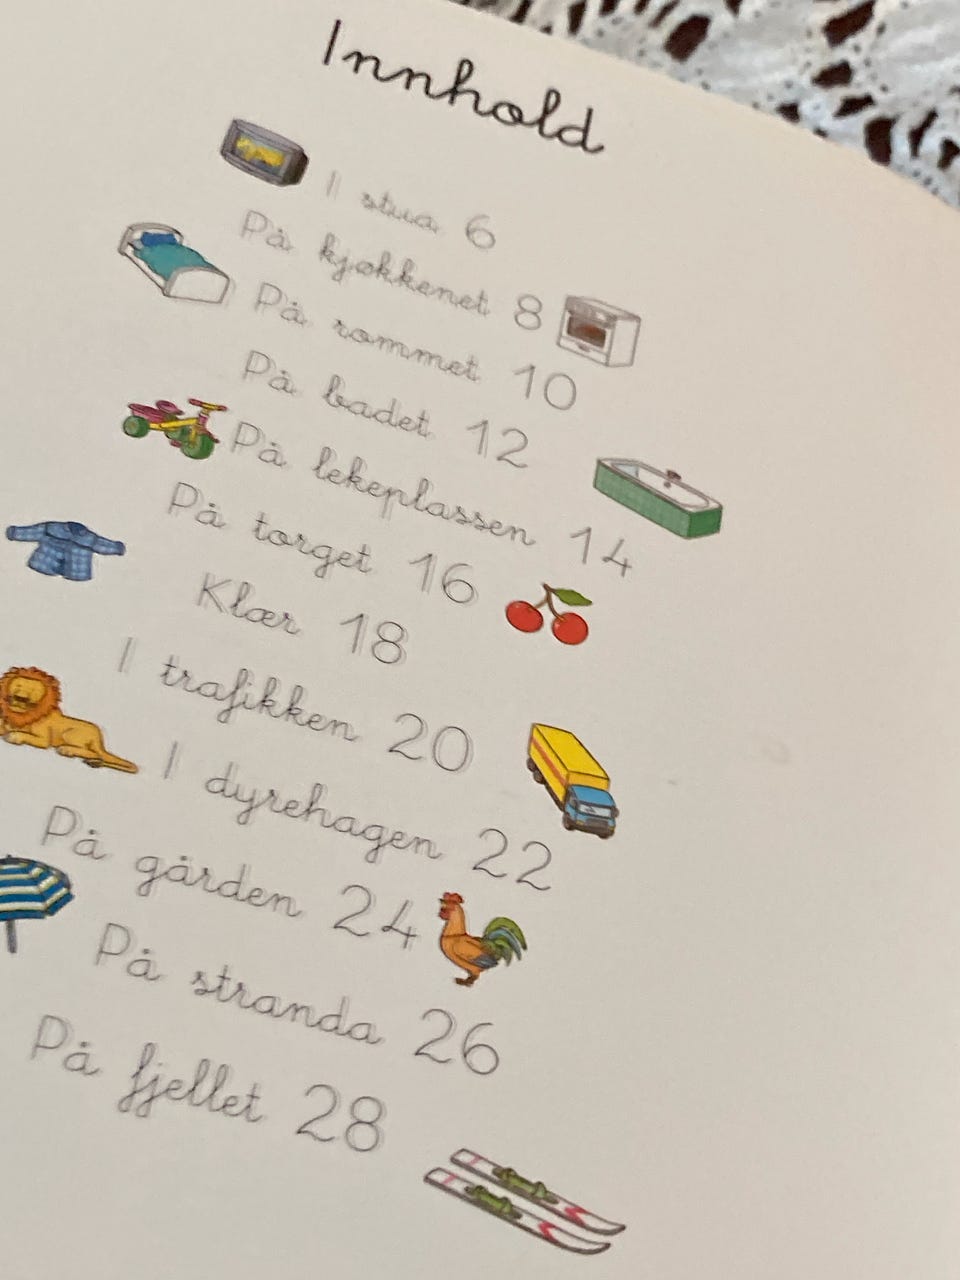 Innhold
I stua 6
På kjøkkenet 8
På rommet 10
På badet 12
På lekeplassen 14
På torget 16
Klær 18
I trafikken 20
I dyrehagen 22
På gården 24
På stranda 26
På fjellet 28